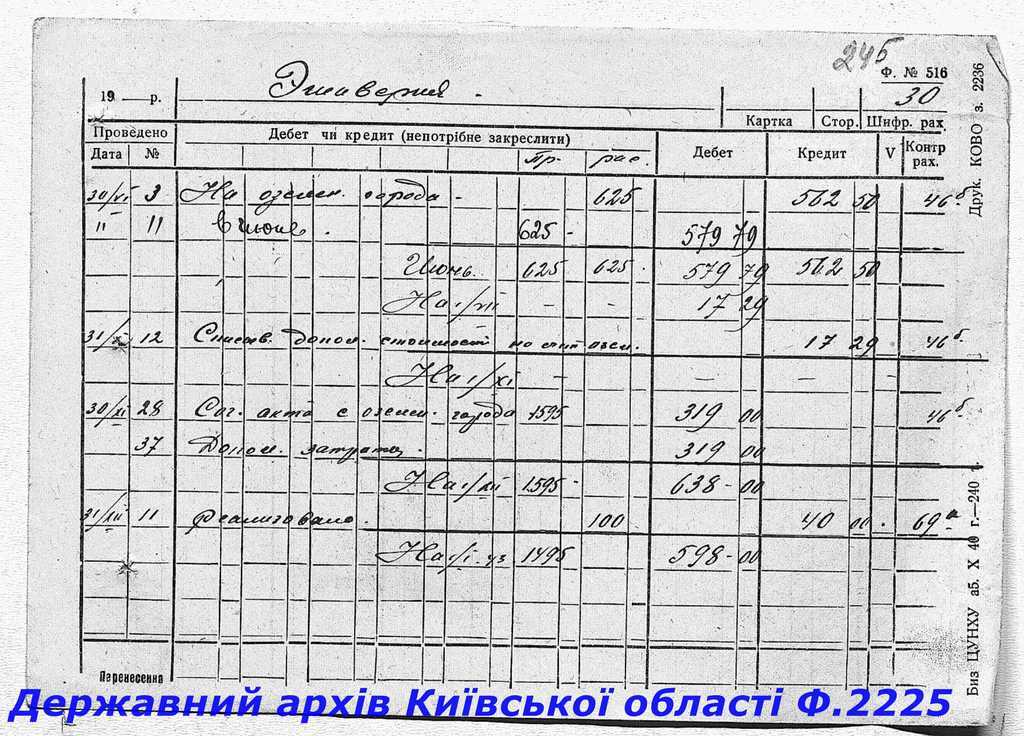 245
Ф. № 516
19 — р. Эшаверия. 30
Картка Стор. Шифр. рах
Проведено Дебет чи кредит (непотрібне закреслити) Дебет Кредит V Контр рах.
Дата № Пр. рас.
30/VI 3 На озелен. города - 625 562 50 46б
" 11 в июне. 625 - 579 79
Июнь. 625 625 - 579 79 562 50
На 1/VII - - 17 29
31/X 12 Списав. допол. стоимост на счт озел. 17 29 46б
На 1/XI - - - - -
30/XI 28 Сог. акта с озелен. города 1595 319 00 46б
37 Допол. затраты. 319 00
На 1/XII 1595 - 638 - 00
31/XII 11 реализовало. 100 40 00 - 69а
На 1/I - 43 1495 598 - 00
Перенесення
Друк. КОВО з. 2236
Биз ЦУНХУ аб. X 40 г.—240 т.
Державний архів Київської області Ф.2225